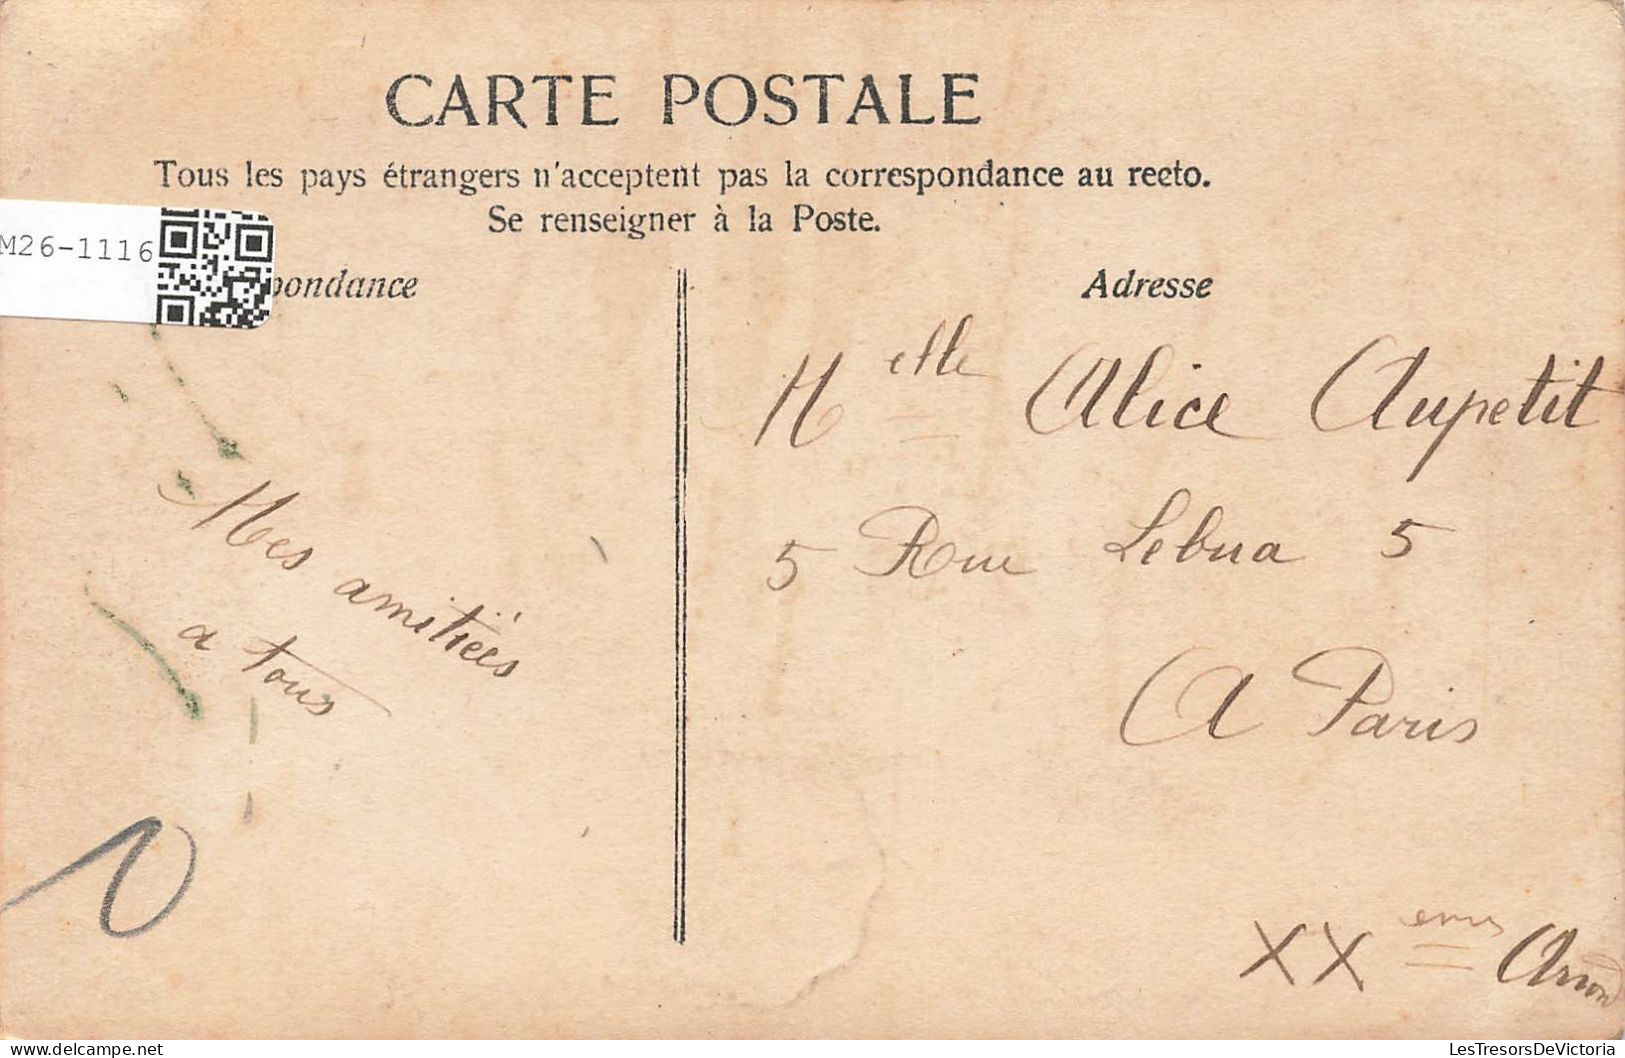 CARTE POSTALE
Tous les pays étrangers n'acceptent pas la correspondance au recto.
Se renseigner à la Poste.
M26-1116
pondance
Adresse
Melle Alice Aupetit
5 Rue Lebua 5
A Paris
XXeme Arron
Mes amitiées
a tous
LesTresorsDeVictoria